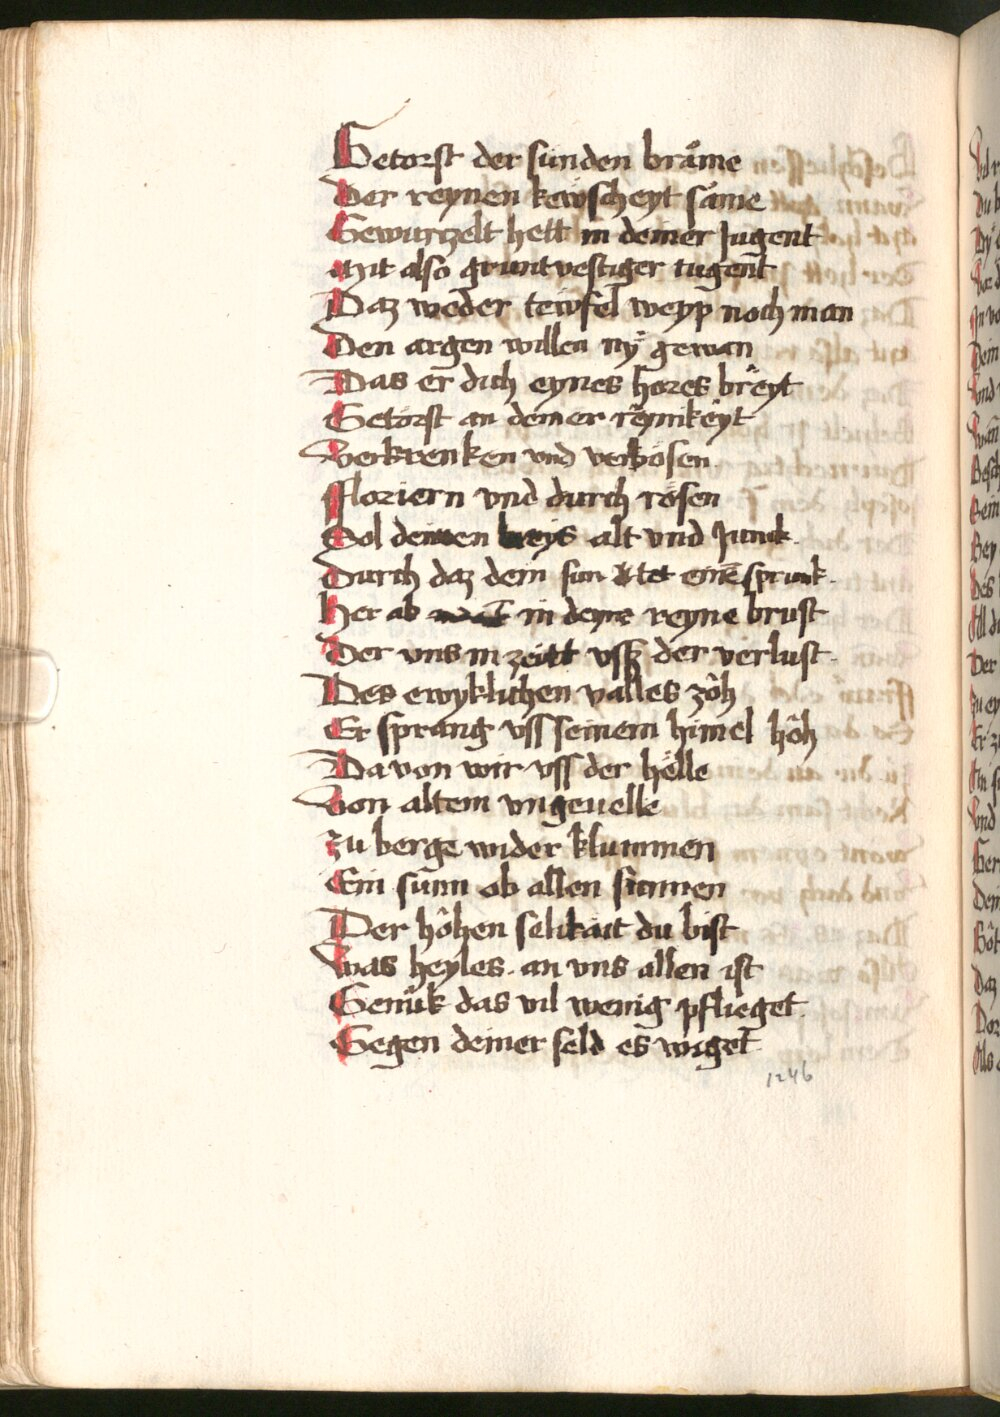 Getorst der sunden bräme
Der reynen kewscheyt säme
Gewurtzelt hett in deiner Jugent
Mit also gruntvestiger tugent
Daz weder tewfel weyp noch man
Den argen willen nÿ gewan
Das er dich eynes hores breyt
Getörst an deiner reynikeyt
Verkrenken vnd verbösen
Floriern vnd durch rösen
Sol deinen breys alt vnd Junck
Durch daz dein sun tet einē sprunk
Her ab in deyne reyne brust
Der vns in zeitt vss der verlust
Des ewyklichen valles zôh
Er sprang vss seinem himel hôh
Da von wir vss der helle
Von altem vngeuelle
Zu berge wider klummen
Ein sunn ob allen sunnen
Der hôhen selikait du bist
Was heyles an vns allen ist
Genük das vil wenig pflieget
Gegen deiner seld es wiget
1246